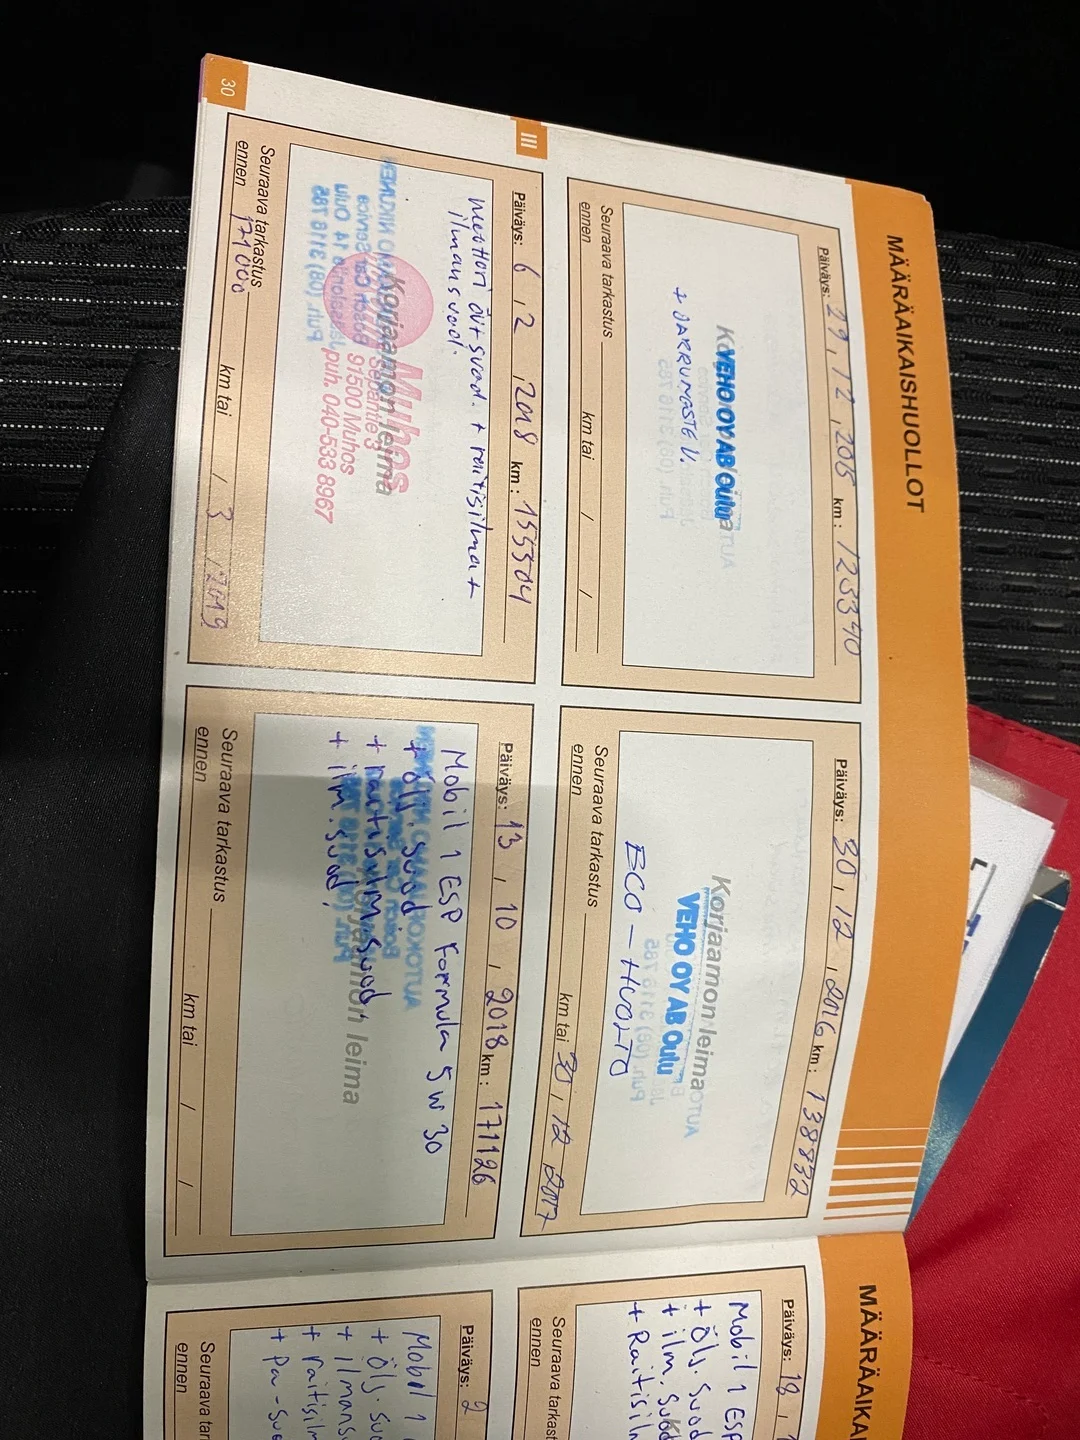 MÄÄRÄAIKAISHUOLLOT
Päiväys: 29, 12, 2015 km: 123340
VEHO OY AB Oulu
+ JARRUNESTE V.
Seuraava tarkastus
ennen km tai / /
Päiväys: 30, 12, 2016 km: 138832
Korjaamon leima
VEHO OY AB Oulu
BCO - HUOLTO
Seuraava tarkastus
ennen km tai 30, 12 2017
III
Päiväys: 6, 2, 2018 km: 155504
moottori öljt suod. + raitisilma +
ilmansuod.
Korjaamon leima
Muhos
91500 Muhos
puh. 040-533 8967
Seuraava tarkastus
ennen 171000 km tai / 3 / 2019
Päiväys: 13, 10, 2018 km: 171126
Mobil 1 ESP Formula 5W30
+ ölj. suod
+ raitisilm. suod.
+ ilm. suod.
Seuraava tarkastus
ennen km tai / /
30
MÄÄRÄAIKA
Päiväys: 18,
Mobil 1 ESP
+ Ölj. suod
+ ilm. suod
+ Raitisil
Seuraava tarkast
ennen
Päiväys: 2
Mobil 1
+ ölj. suo
+ ilmans
+ raitisil
+ pa-suo
Seuraava tar
ennen